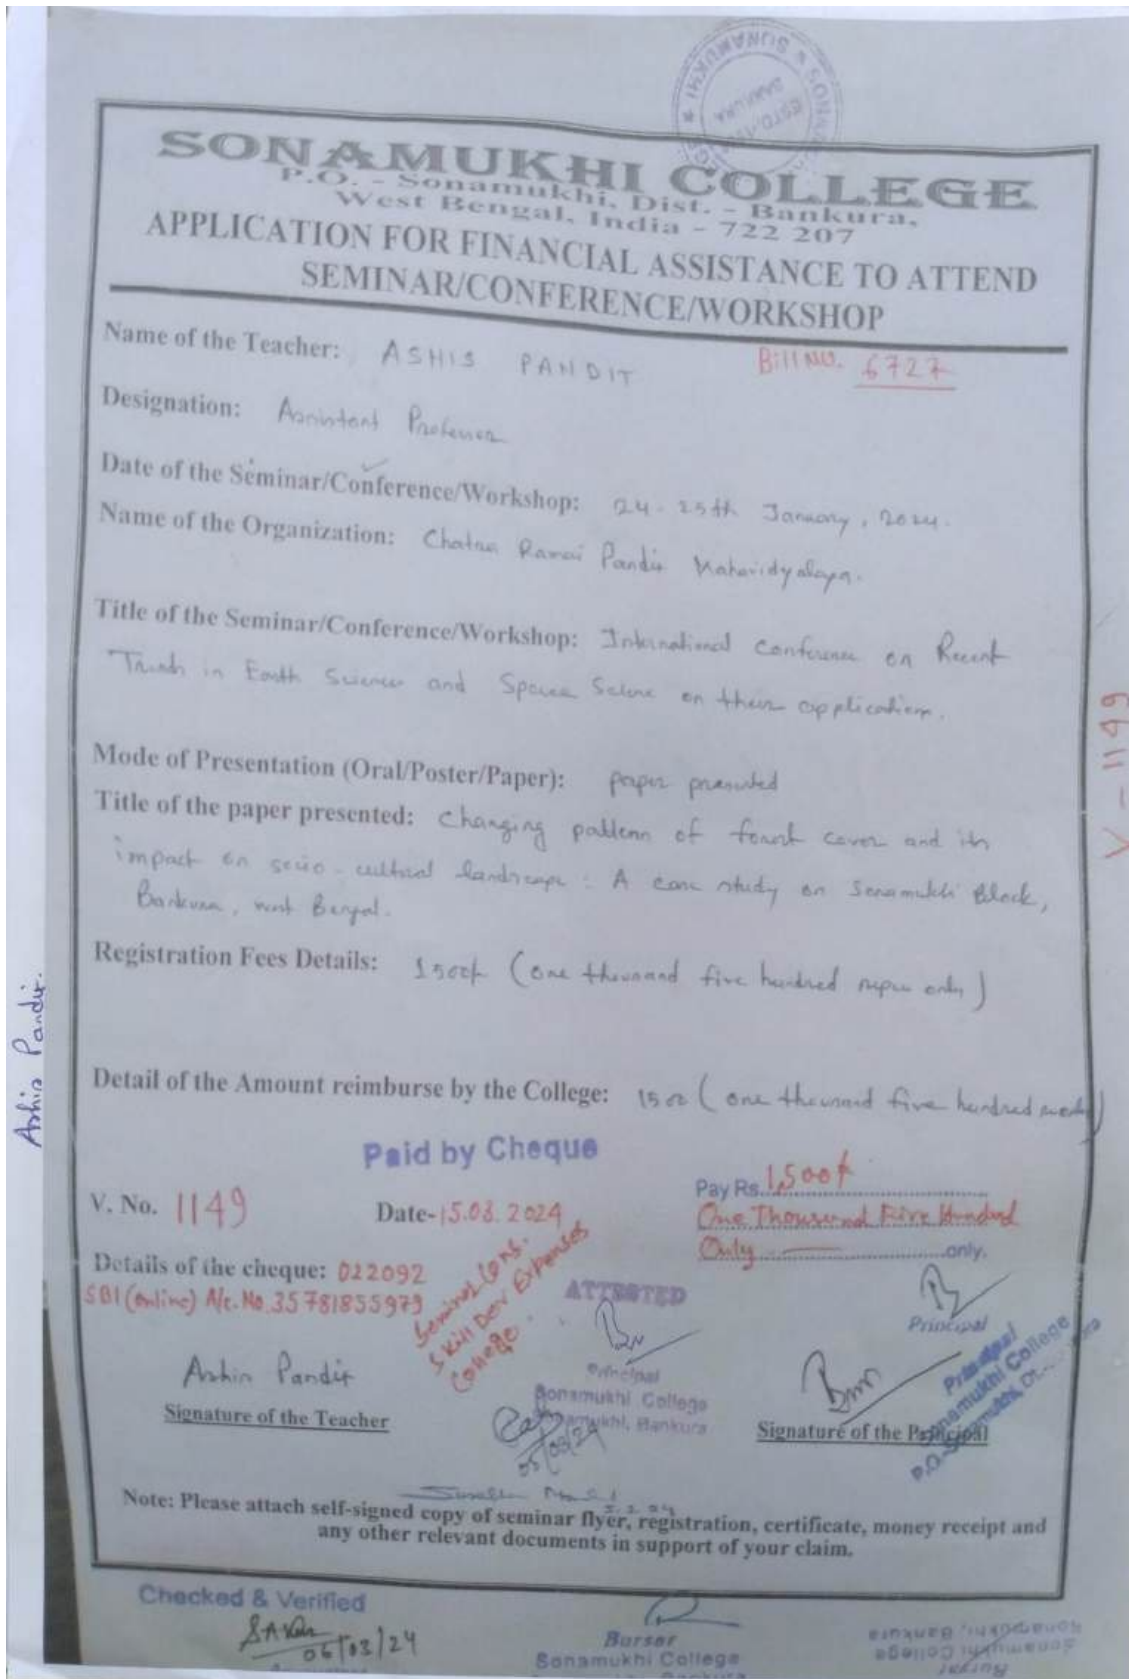 SONAMUKHI COLLEGE
P.O. - Sonamukhi, Dist. - Bankura,
West Bengal, India - 722 207
APPLICATION FOR FINANCIAL ASSISTANCE TO ATTEND
SEMINAR/CONFERENCE/WORKSHOP
Name of the Teacher: ASHIS PANDIT
Bill No. 6727
Designation: Assistant Professor
Date of the Seminar/Conference/Workshop: 24-25th January, 2024.
Name of the Organization: Chatna Ramai Pandit Mahavidyalaya.
Title of the Seminar/Conference/Workshop: International Conference on Recent
Trends in Earth Science and Space on their application.
V-1149
Mode of Presentation (Oral/Poster/Paper): paper presented
Title of the paper presented: Changing pattern of forest cover and its
impact on socio-cultural landscape: A case study on Sonamukhi Block,
Bankura, west Bengal.
Registration Fees Details: 1500/- (one thousand five hundred rupee only)
Ashis Pandit.
Detail of the Amount reimburse by the College: 1500 (one thousand five hundred
Paid by Cheque
Pay Rs. 1,500/-
One Thousand Five Hundred
Only only.
V. No. 1149 Date-15.03.2024
Details of the cheque: 022092
SBI (online) A/c. No. 35781855979
Seminar
Skill Dev Expenses
College.
ATTESTED
Principal
Sonamukhi College
Sonamukhi, Bankura
Principal
Principal
Sonamukhi College
P.O.-Sonamukhi, Dt.
Ashis Pandit
Signature of the Teacher
05/03/24
Signature of the Principal
Note: Please attach self-signed copy of seminar flyer, registration, certificate, money receipt and
any other relevant documents in support of your claim.
Checked & Verified
06/03/24
Bursar
Sonamukhi College
Bursar
Sonamukhi College
Sonamukhi, Bankura